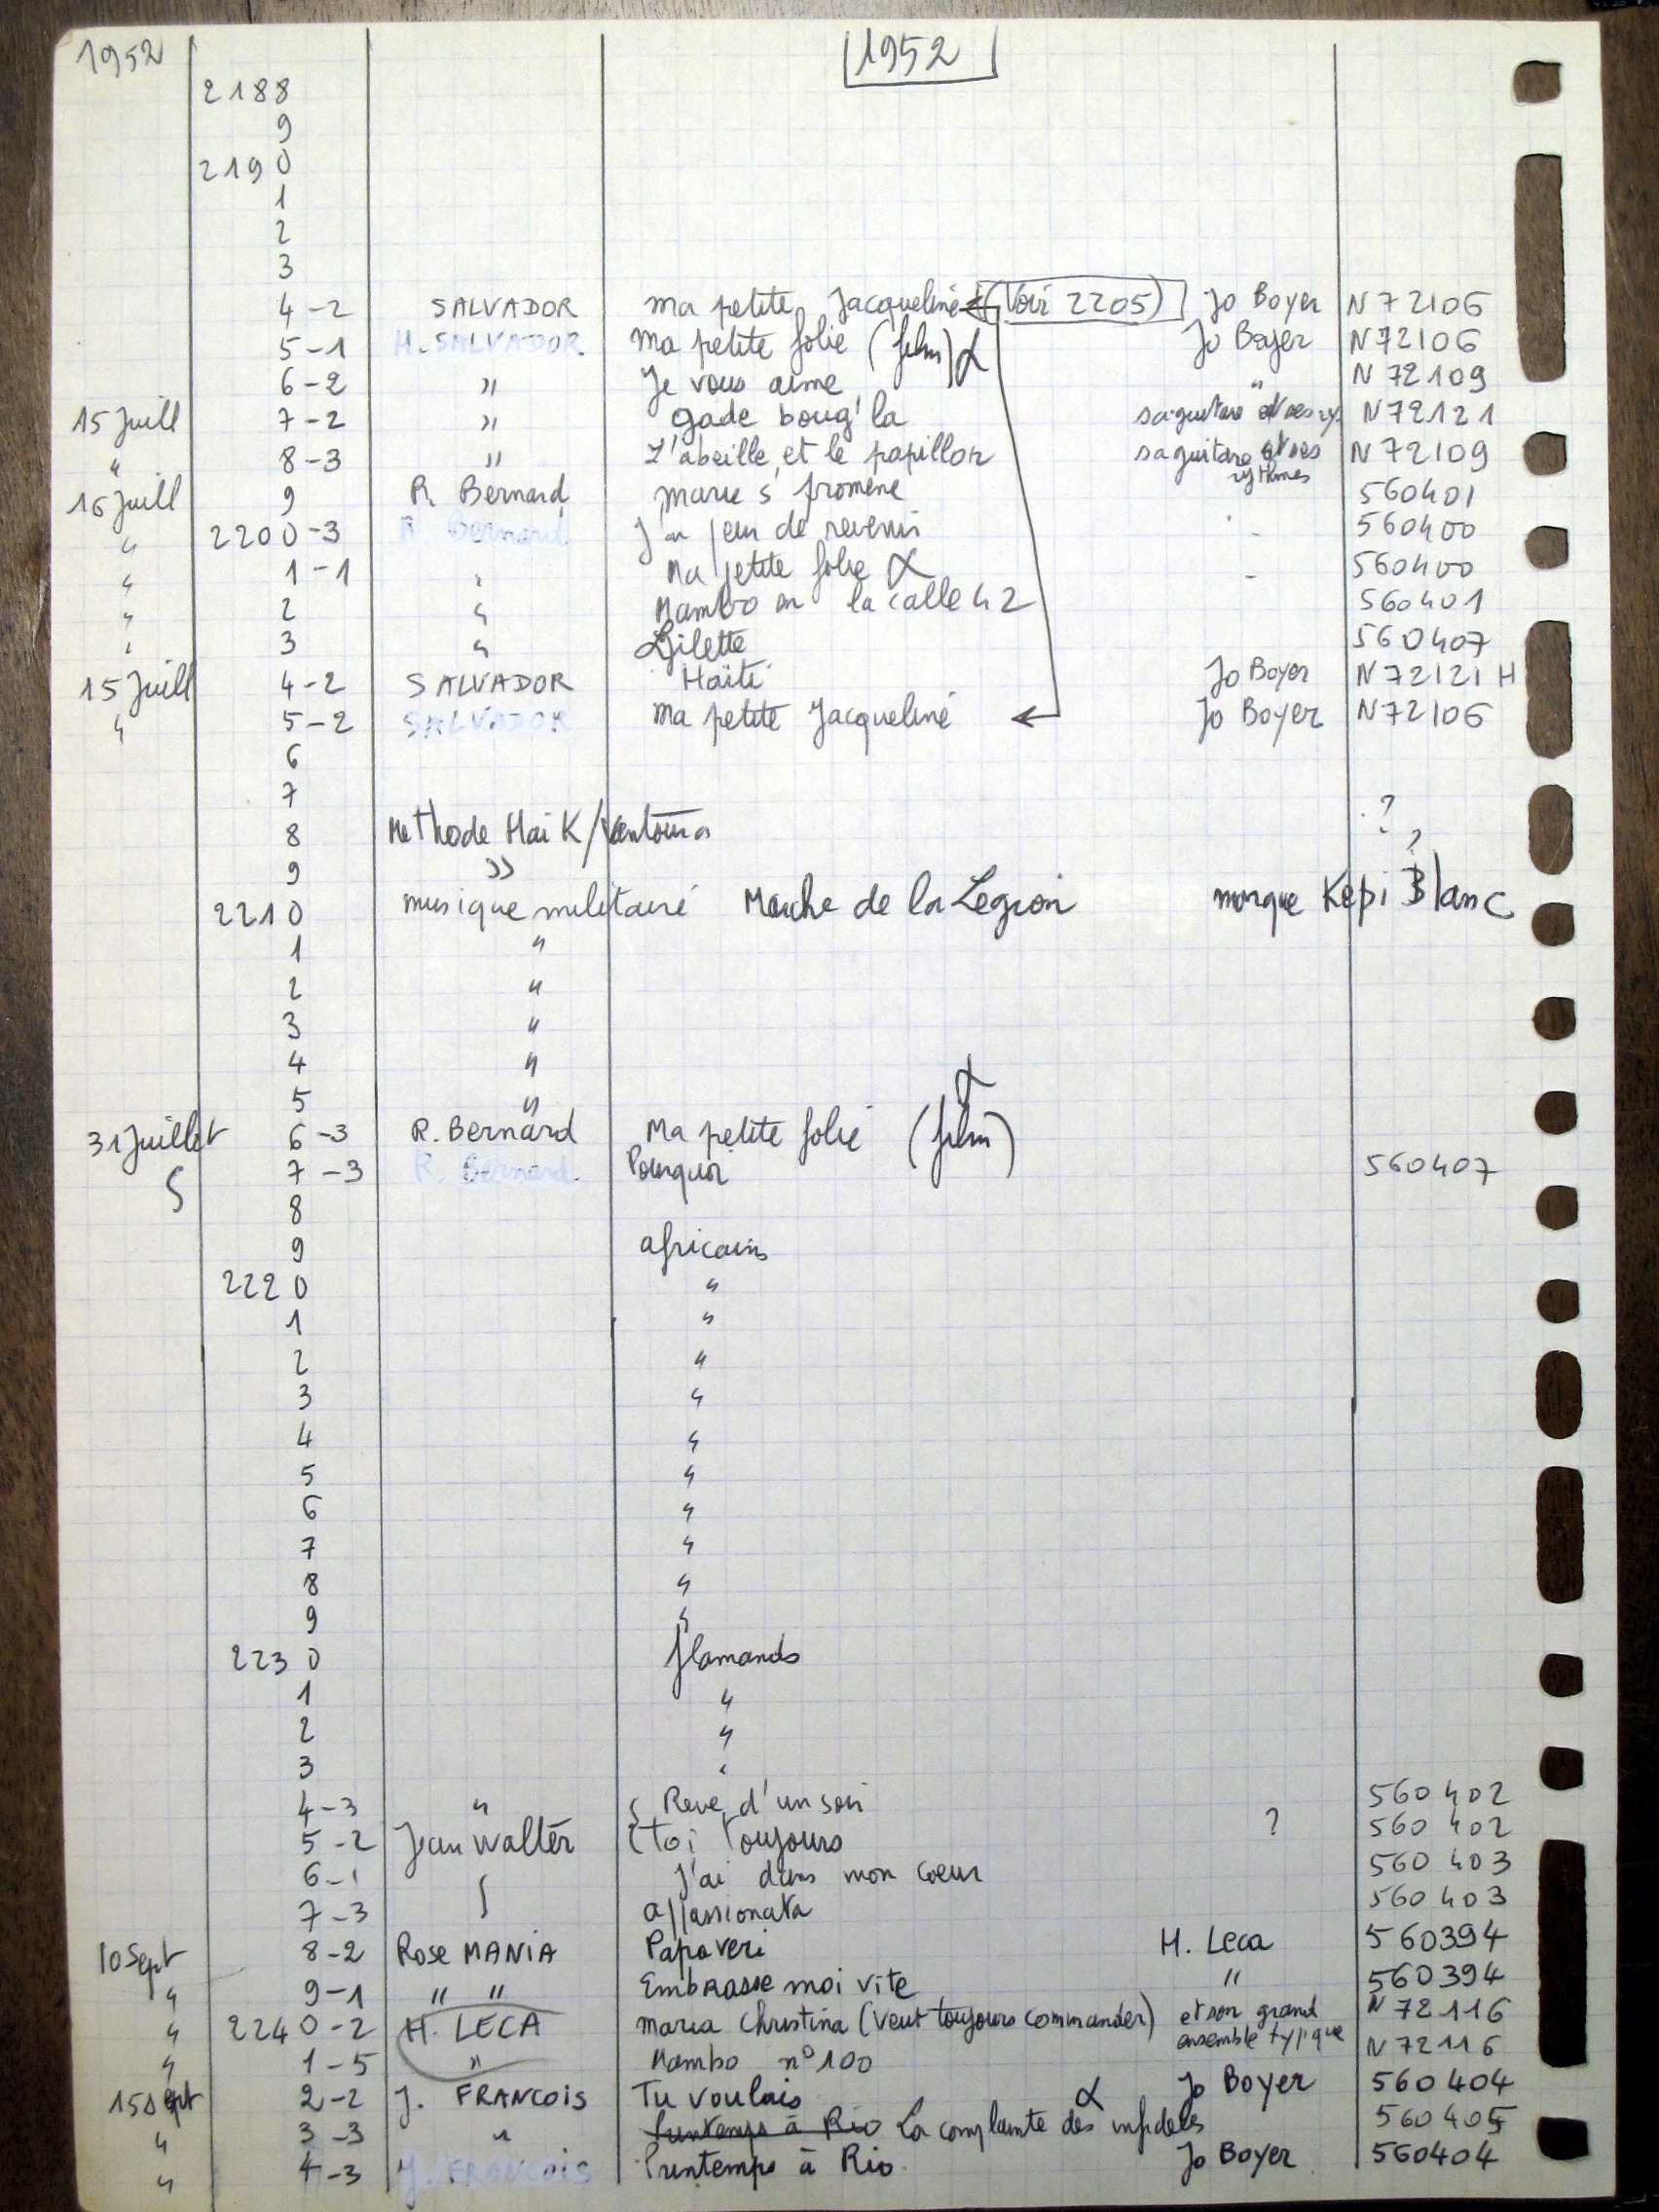 1952 1952
2188
9
2190
1
2
3
4-2 SALVADOR ma petite Jacqueline (Voir 2205) Jo Boyer N 72106
5-1 H. SALVADOR ma petite folie (film) α Jo Boyer N 72106
6-2 " Je vous aime " N 72109
15 Juill 7-2 " gade boug' la sa guitare et ses ry. N 72121
" 8-3 " L'abeille et le papillon sa guitare et ses rythmes N 72109
16 Juill 9 R. Bernard marie s' promène 560401
" 2200-3 R. Bernard J'ai peur de revenir - 560400
" 1-1 " Ma petite folie α - 560400
" 2 " Mambo on la calle 42 560401
" 3 " Gilette 560407
15 Juill 4-2 SALVADOR Haïti Jo Boyer N 72121 H
" 5-2 SALVADOR ma petite Jacqueline Jo Boyer N 72106
6
7 ?
8 Methode Hai K/Ventoura ?
9 "
2210 musique militaire Marche de la Legion marque Kepi Blanc
1 "
2 "
3 "
4 "
5 "
31 Juillet 6-3 R. Bernard Ma petite folie (film) α
7-3 R. Bernard Pourquoi 560407
8
9 africains
2220 "
1 "
2 "
3 "
4 "
5 "
6 "
7 "
8 "
9 "
2230 flamands
1 "
2 "
3 "
4-3 " Reve d'un soir 560 402
5-2 Jean Walter toi Toujours ? 560 402
6-1 J'ai dans mon coeur 560 403
7-3 appassionata 560 403
10 Sept 8-2 Rose MANIA Papaveri H. Leca 560394
" 9-1 " " Embrasse moi vite " 560394
" 2240-2 H. LECA maria Christina (veut toujours commander) et son grand ensemble typique N 72116
" 1-5 " Mambo n° 100 N 72116
15 Sept 2-2 J. FRANCOIS Tu voulais Jo Boyer 560404
" 3-3 " Printemps à Rio La complainte des infideles α 560405
" 4-3 J. FRANCOIS Printemps à Rio Jo Boyer 560404